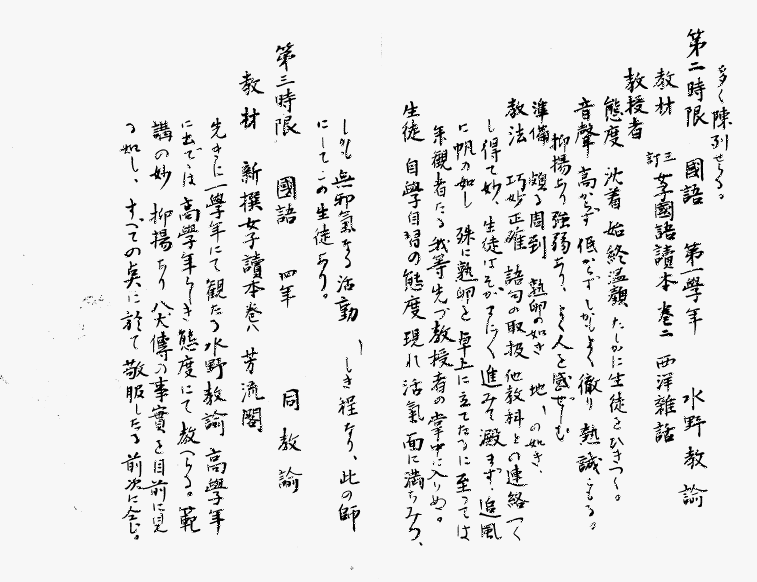 多く陳列せらる。
第二時限　國語　第一學年　水野教諭
教材　三訂女子國語讀本　巻二　西洋雑話
教授者
態度　沈着　始終温顔　たしかに生徒をひきつく。
音聲　高からず　低からず　しかもよく徹り　熱誠こもる。
抑揚あり　強弱あり、よく人を感ぜしむ
準備　頗る周到　熟卵の如き　地　の如き、
教法　巧妙正確　語句の取扱　他教科との連絡つく
し得て妙、生徒はそがまにまに進みて澱まず、追風
に帆の如し　殊に熟卵を卓上に立てたるに至っては
来觀者たる我等先づ教授者の掌中に入りぬ。
生徒　自學自習の態度　現れ　活氣　面に満ちみつ、
しかも無邪氣なる活動　しき程なり、此の師
にしてこの生徒あり。
第三時限　國語　四年　同教諭
教材　新撰女子讀本巻八　芳流閣
先きに一學年にて観たる水野教諭　高學年
に出でゝは高學年らしき態度にて教へらる。範
講の妙　抑揚あり　八犬傳の事實を目前に見
る如し、すべての点に於て敬服したる前次に仝じ。